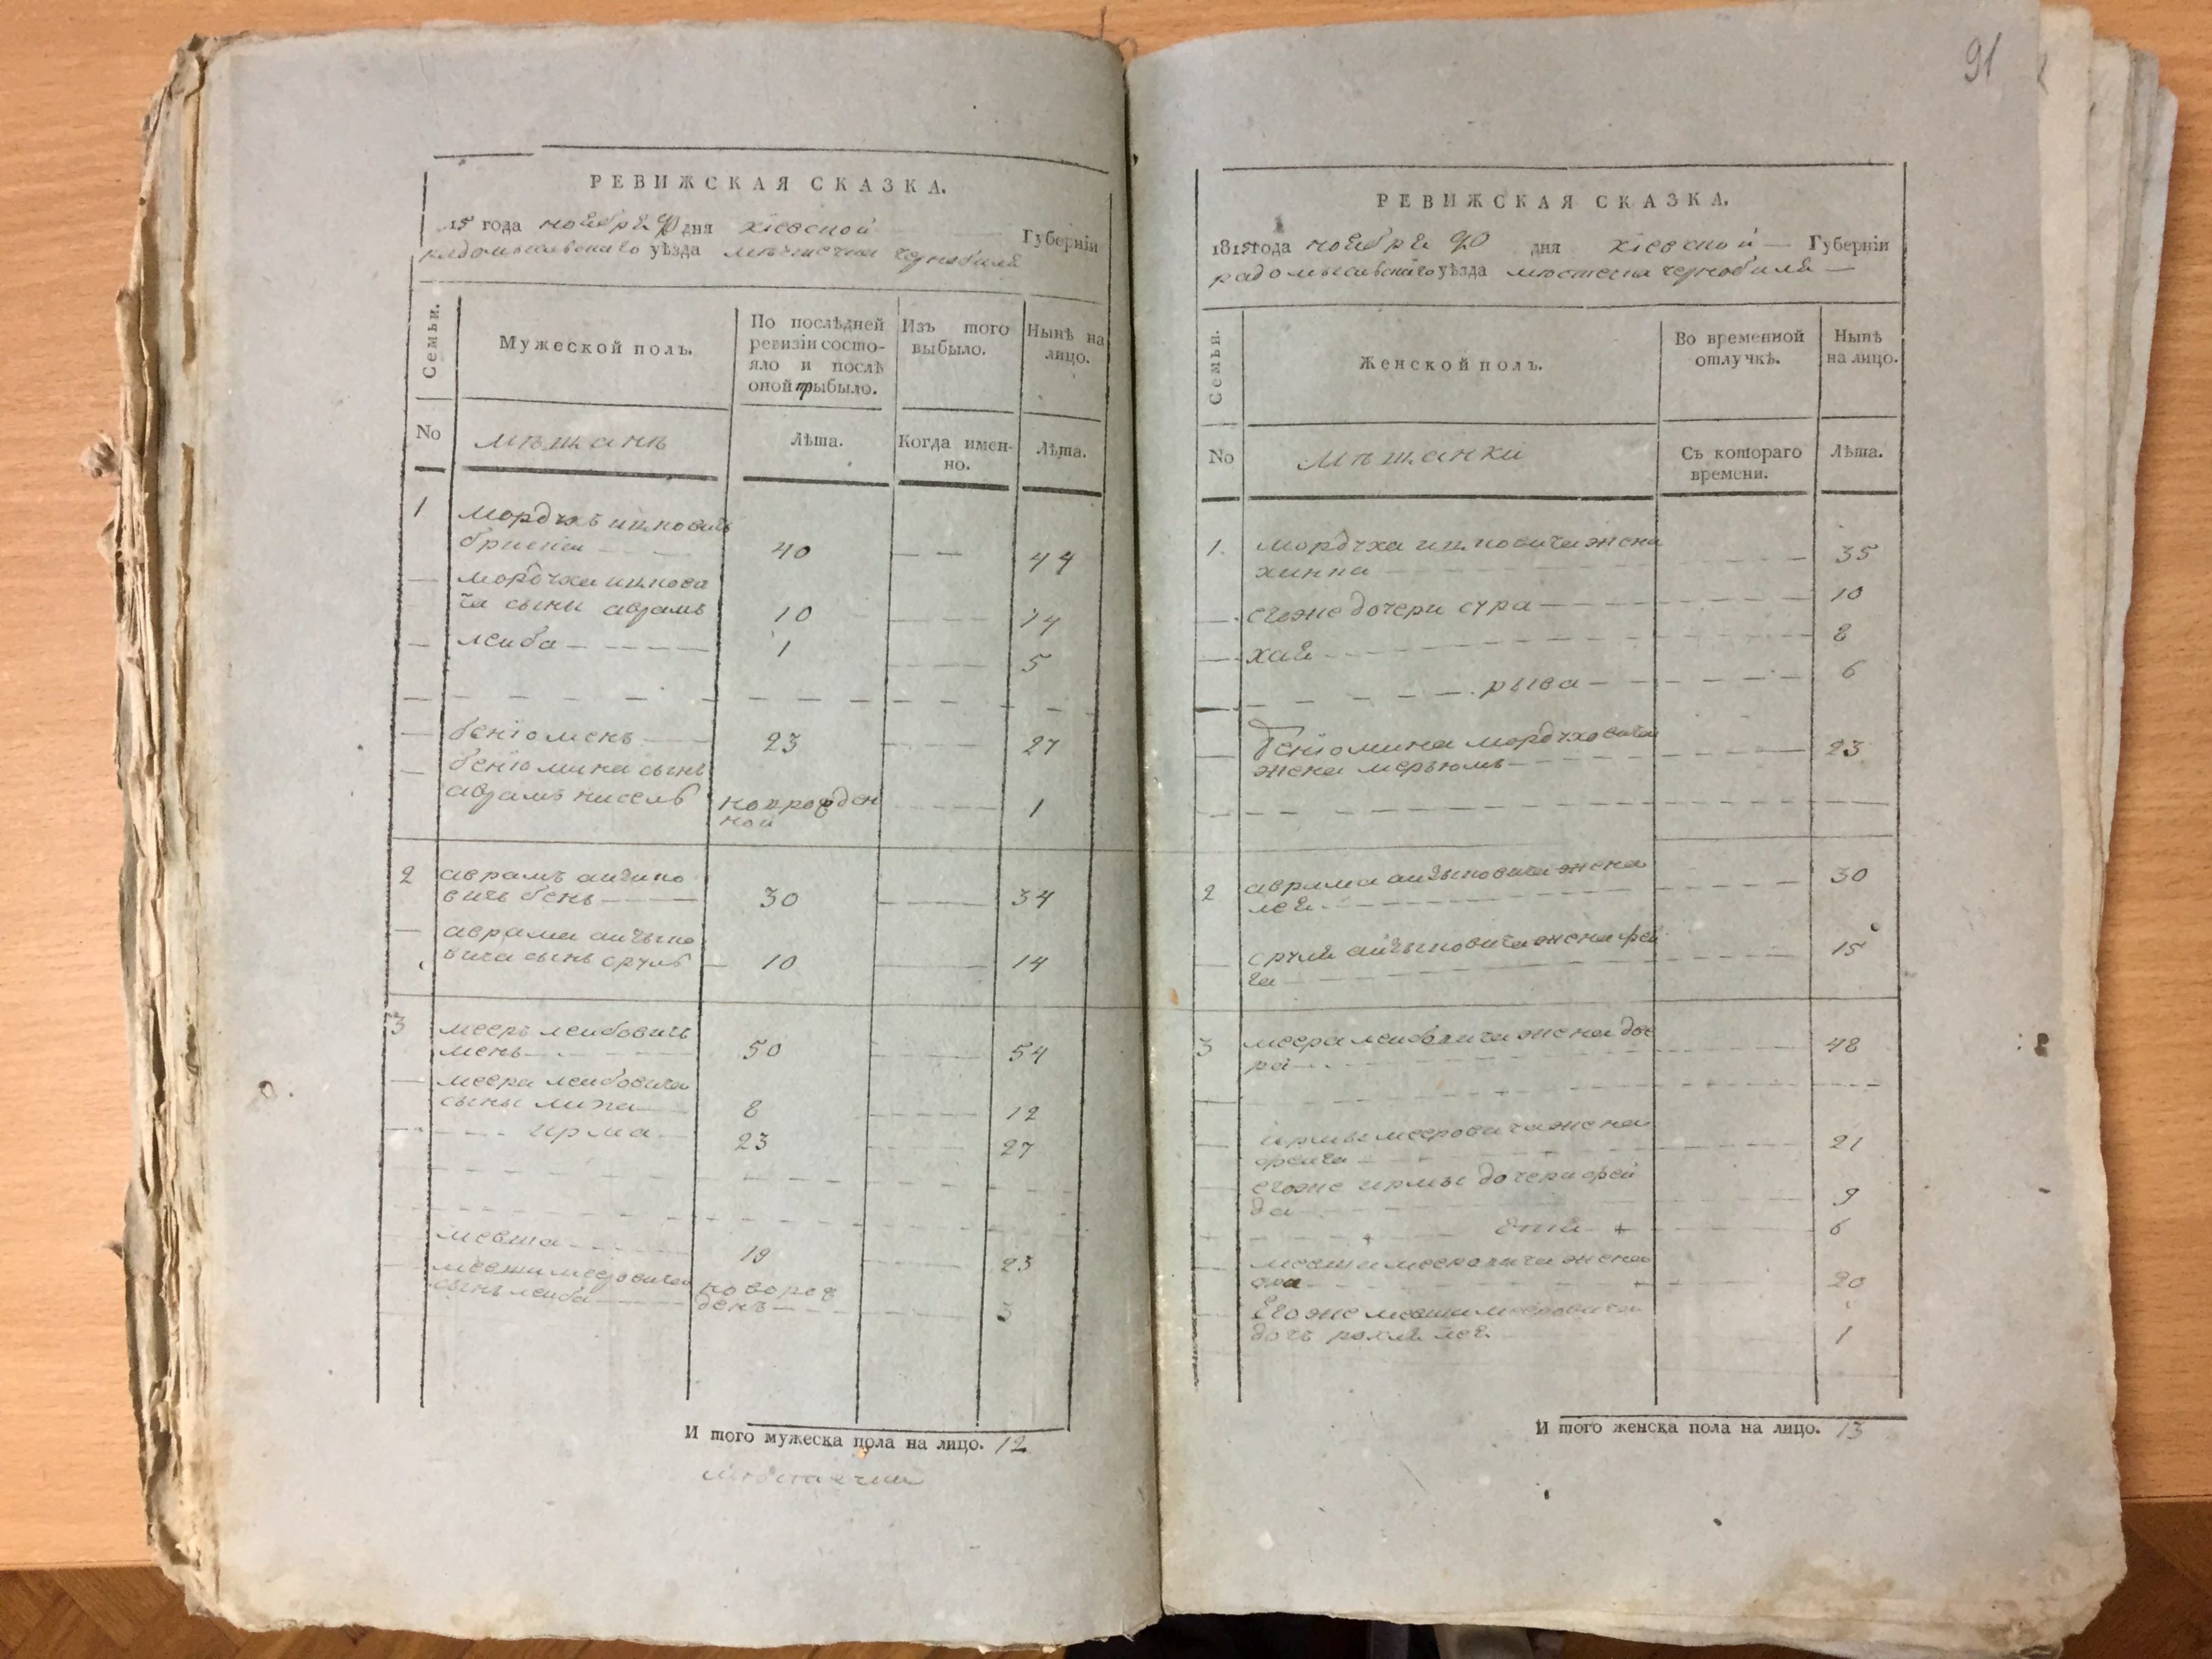 РЕВИЖСКАЯ СКАЗКА.
15 года ноебре 20 дня кiевской Губернiи
радомысльскаго уѣзда мѣстечка чернобиля
Семьи.
Мужеской полъ.
По послѣдней ревизiи состояло и послѣ оной прибыло.
Изъ того выбыло.
Нынѣ на лицо.
No
мѣщанѣ
Лѣта.
Когда именно.
Лѣта.
1 мордухъ
40 — — 44
— мордуха
ча сыни аврамъ 10 14
— леиба 1 5
— бенiоменъ 23 27
— бенiомина сынъ
аврамъ нисель новорожден 1
ной
2 аврамъ
вичъ бенъ 30 34
— аврама
вича сынъ сруль 10 14
3 мееръ леибовичъ
50 54
— меера леибовича
сыны 8 12
ирма 23 27
мевша 19 23
мевши меeровича новорож
сынъ леиба денъ 3
И того мужеска пола на лицо. 12
РЕВИЖСКАЯ СКАЗКА.
1815 года ноебре 20 дня кiевской Губернiи
радомысльскаго уѣзда местечка чернобиля
91
Семьи.
Женской полъ.
Во временной отлучкѣ.
Нынѣ на лицо.
No
мѣщанки
Съ котораго времени.
Лѣта.
1. мордуха жена
35
егоже дочери сура 10
хае 8
рыва 6
бенiомина мордуховича
жена мерьюмъ 23
2 аврама жена
лее 30
сруле жена фей
га 15
3 меера леибовича жена две
ра 48
ирмы меeровича жена
фейга 21
егоже ирмы дочери фей
да 9
6
мевши меeровича жена
20
Егоже мевши меeровича
дочъ рахле лее 1
И того женска пола на лицо. 13